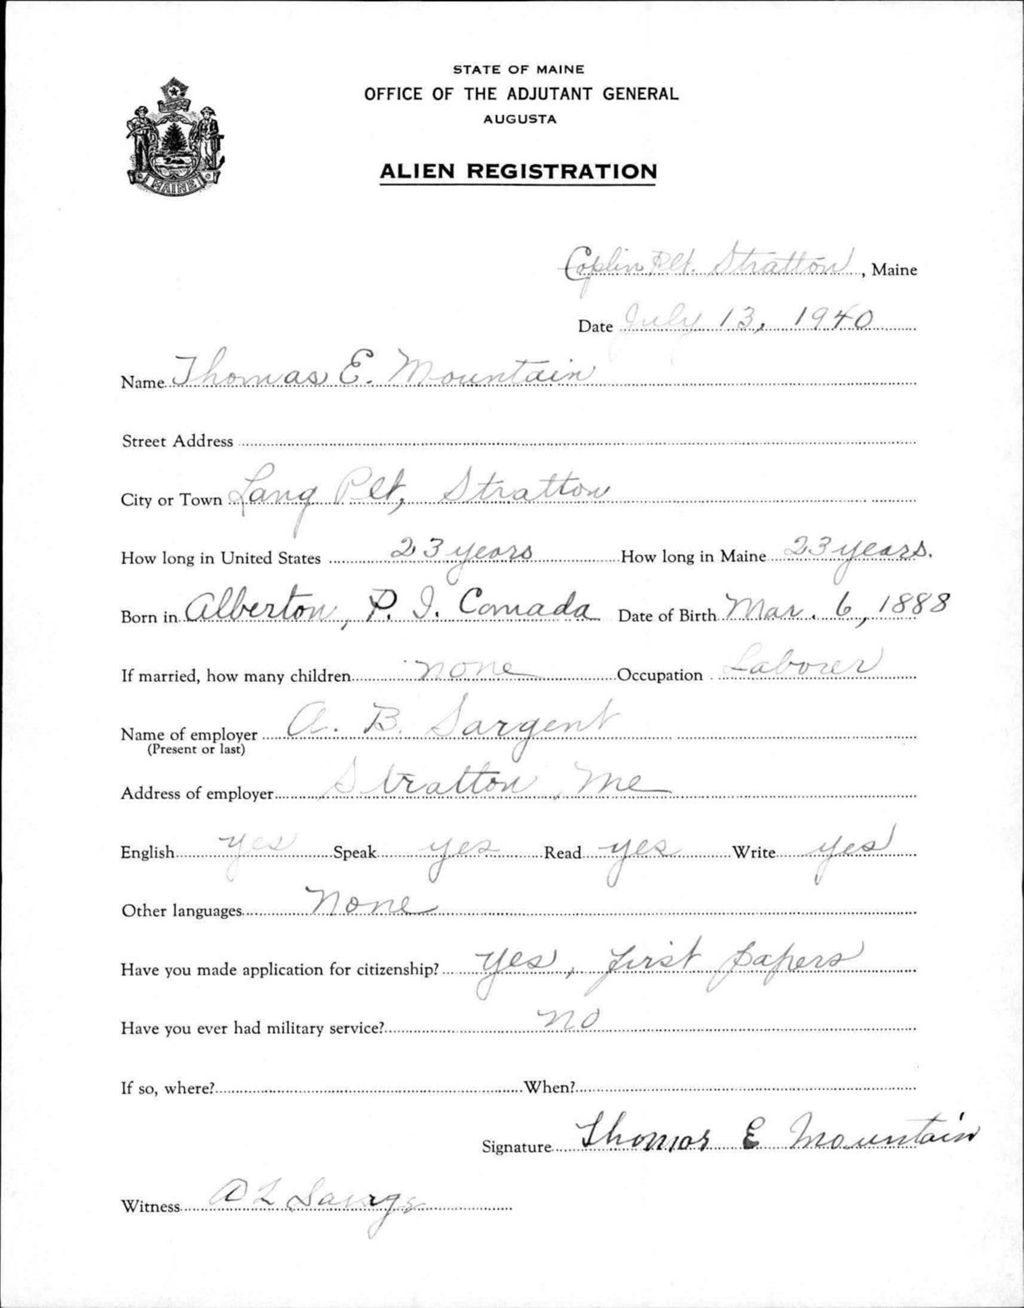 STATE OF MAINE
OFFICE OF THE ADJUTANT GENERAL
AUGUSTA
ALIEN REGISTRATION
MAINE
Coplin Plt. Stratton, Maine
Date July 13, 1940
Name Thomas E. Mountain
Street Address
City or Town Lang Plt, Stratton
How long in United States 23 years How long in Maine 23 years.
Born in Alberton, P. I. Canada Date of Birth Mar. 6, 1888
If married, how many children none Occupation Laborer
Name of employer A. B. Sargent
(Present or last)
Address of employer Stratton, Me
English yes Speak yes Read yes Write yes
Other languages None
Have you made application for citizenship? Yes, first papers
Have you ever had military service? no
If so, where? When?
Signature Thomas E Mountain
Witness